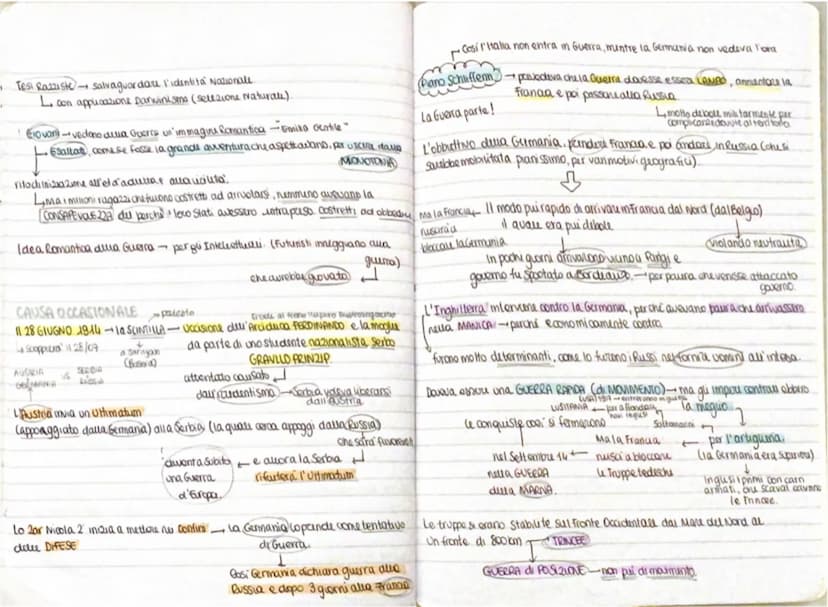 Tesi Razziste → salvaguardare l'identità Nazionale
↳ con applicazione Darwinismo (selezione Naturale)
Giovani → vedono della Guerra un'immagine Romantica → "Emilio Gentile"
↳ Esaltati, come se fosse la grande avventura che aspettavano, per uscire dalla
MONOTONIA
rito di iniziazione all'età adulta e alla virilità.
↳ Ma i milioni ragazzi che furono costretti ad arruolarsi, nemmeno avevano la
CONSAPEVOLEZZA del perché i loro Stati avessero intrapreso, costretti ad obbedire
Idea Romantica della Guerra → per gli Intellettuali. (Futuristi inneggiano alla
guerra)
che avrebbe giovato ↲
CAUSA OCCASIONALE → pretesto
Erede al trono Impero Austroungarico
Il 28 GIUGNO 1914 → la SCINTILLA → uccisione dell'Arciduca FERDINANDO e la moglie
↳ scoppierà il 28/07
a Sarajevo
(Bosnia)
da parte di uno studente nazionalista serbo
GRAVILO PRINZIP
AUSTRIA vs SERBIA
GERMANIA RUSSIA
attentato causato ↲
dall'irredentismo → Serbia voleva liberarsi
dall'Austria
L'Austria invia un Ultimatum
(appoggiato dalla Germania) alla Serbia (la quale aveva appoggi dalla Russia)
che sarà favorevole
diventa subito
una Guerra
d'Europa.
← e allora la Serbia ↲
rifiuterà l'Ultimatum
Lo Zar Nicola 2° inizia a mettere nei confini
delle DIFESE
→ La Germania lo prende come tentativo
di Guerra.
Così Germania dichiara guerra alla
Russia e dopo 3 giorni alla Francia
Così l'Italia non entra in Guerra, mentre la Germania non vedeva l'ora
Piano Schliffenn → prevedeva che la Guerra dovesse essere LAMPO, annientare la
Francia e poi passare alla Russia
↳ molto debole militarmente per
La Guerra parte!
L'obbiettivo della Germania, prendersi Francia e poi andare in Russia (che si
sarebbe mobilitata pianissimo, per vari motivi geografici).
Ma la Francia
riuscirà a
bloccare la Germania
Il modo più rapido di arrivare in Francia dal Nord (dal Belgio)
il quale era più debole
violando neutralità
In pochi giorni arrivarono vicino a Parigi e
governo fu spostato a Bordeaux → per paura che venisse attaccato
governo.
L'Inghilterra interviene contro la Germania, perché avevano paura che arrivassero
nella MANICA → perché economicamente contro
furono molto determinanti, come lo furono i Russi nel fornire uomini all'intesa.
Doveva essere una GUERRA RAPIDA (di MOVIMENTO) → ma gli imperi centrali ebbero
la meglio
LUSITANIA
le conquiste così si fermarono
Soltanto
Ma la Francia
nel Settembre 14 ← riuscì a bloccare
nella GUERRA
le Truppe tedesche
della MARNA.
per l'artiglieria.
(la Germania era superiore)
Inglesi i primi con carri
armati, che scavalcavano
le Trincee.
Le truppe si erano stabilite sul Fronte Occidentale dal Mare del Nord al
Un fronte di 800 km → TRINCEE
GUERRA di POSIZIONE → non più di movimento